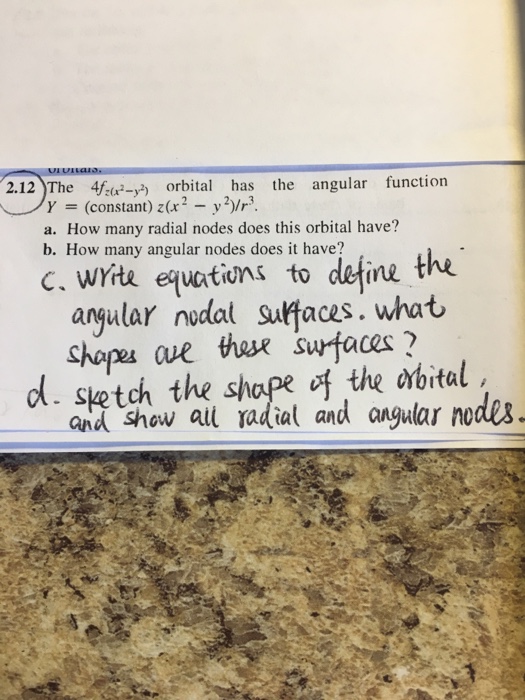 2.12 The 4f_{z(x²−y²)} orbital has the angular function
Y = (constant) z(x² − y²)/r³.
a. How many radial nodes does this orbital have?
b. How many angular nodes does it have?
c. write equations to define the
angular nodal surfaces. what
shapes are these surfaces?
d. sketch the shape of the orbital,
and show all radial and angular nodes.